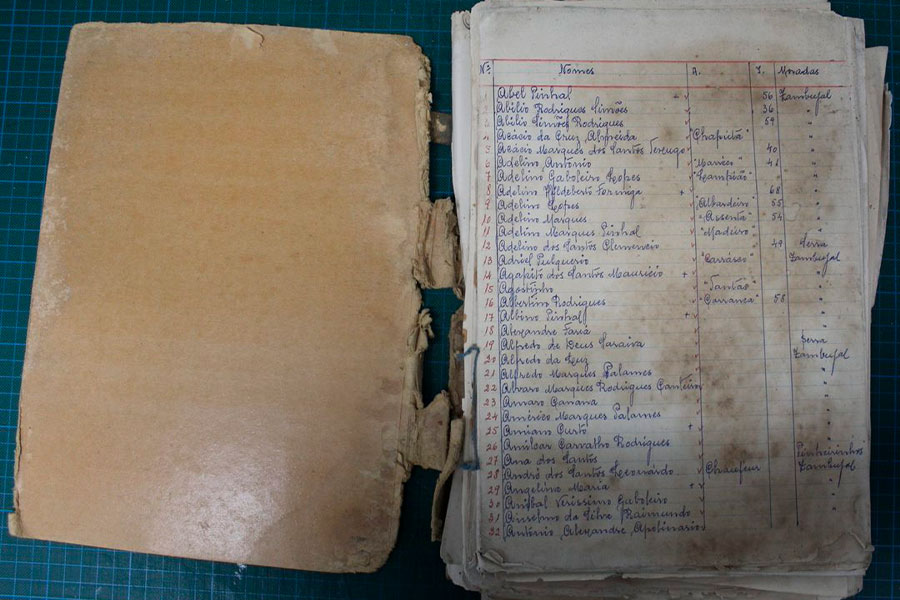 Nº Nomes A. I. Moradas
1 Abel Pinhal + 56 Zambujal
2 Abílio Rodrigues Simões 36 "
3 Abílio Simões Rodrigues 59 "
4 Acácio da Cruz Almeida "
5 Acácio Marques dos Santos 40 "
6 Adelino António "
7 Adelino Gaboleiro Lopes "Lampeão" "
8 Adelino Formiga + 68 "
9 Adelino Lopes "Albardeiro" 55 "
10 Adelino Marques "Assenta" 54 "
11 Adelino Marques Pinhal "Madeiro" "
12 Adelino dos Santos Clemencio 49 Serra
13 Adriel Pulguerio "Carrasco" Zambujal
14 Agapito dos Santos Mauricio + "
15 Agostinho "
16 Albertino Rodrigues "Carranca" 58 "
17 Albino Pinhal + "
18 Alexandre Faria "
19 Alfredo de Deus Saraiva Serra
20 Alfredo da Luz Zambujal
21 Alfredo Marques Palames "
22 Alvaro Marques Rodrigues Canteiro "
23 Amaro Canana "
24 Américo Marques Palames "
25 Amiano Curto + "
26 Amilcar Carvalho Rodrigues "
27 Ana dos Santos Pinheirinhos
28 André dos Santos Leonardo Chaufeur Zambujal
29 Angelina Maria + "
30 Anibal Verissimo Gaboleiro "
31 Anselmo da Silva Raimundo "
32 António Alexandre Apolinário